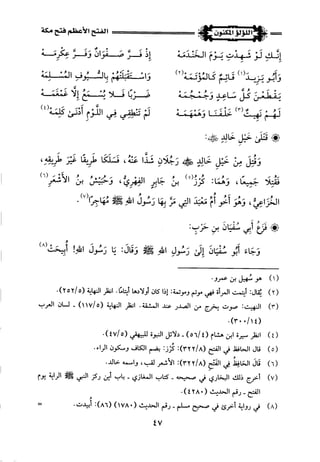 اللؤلؤ المكنون
الفتح الأعظم فتح مكة
إنك لو شهدت يوم الخندمة إذ فر صفوان وفر عكرمة
وأبو يزيد(١) قائم كالمؤتمة(٢) واستقبلتهم بالسيوف المسلمة
يقطعن كل ساعد وجمجمة ضربا فلا يسمع إلا غمغمة
لهم نهيت(٣) خلفنا وهمهمة لم تنطقي في اللوم أدنى كلمة(٤)
قتلى خيل خالد ﷺ:
وقتل من خيل خالد ﷺ رجلان شذا عنه، فسلكا طريقا غير طريقه،
فقتلا جميعا، وهما: كرز(٥) بن جابر الفهري، وحبيش بن الأشعر(٦)
الخزاعي، وهو أخو أم معبد التي مر بها رسول الله ﷺ مهاجرا(٧).
فزع أبي سفيان بن حرب:
وجاء أبو سفيان إلى رسول الله ﷺ وقال: يا رسول الله! أبيحت(٨)
(١) هو سهيل بن عمرو.
(٢) يقال: أيتمت المرأة فهي موتم وموتمة: إذا كان أولادها أيتاما. انظر النهاية (٢٥٢/٥).
(٣) النهيت: صوت يخرج من الصدر عند المشقة. انظر النهاية (١١٧/٥) - لسان العرب
(٣٠٠/١٤).
(٤) انظر سيرة ابن هشام (٥٦/٤) - دلائل النبوة للبيهقي (٤٧/٥).
(٥) قال الحافظ في الفتح (٣٢٢/٨): كرز: بضم الكاف وسكون الراء.
(٦) قال الحافظ في الفتح (٣٢٢/٨): الأشعر لقب، واسمه خالد.
(٧) أخرج ذلك البخاري في صحيحه - كتاب المغازي - باب أين ركز النبي ﷺ الراية يوم
الفتح - رقم الحديث (٤٢٨٠).
(٨) في رواية أخرى في صحيح مسلم - رقم الحديث (١٧٨٠) (٨٦): أبيدت. =
٤٧